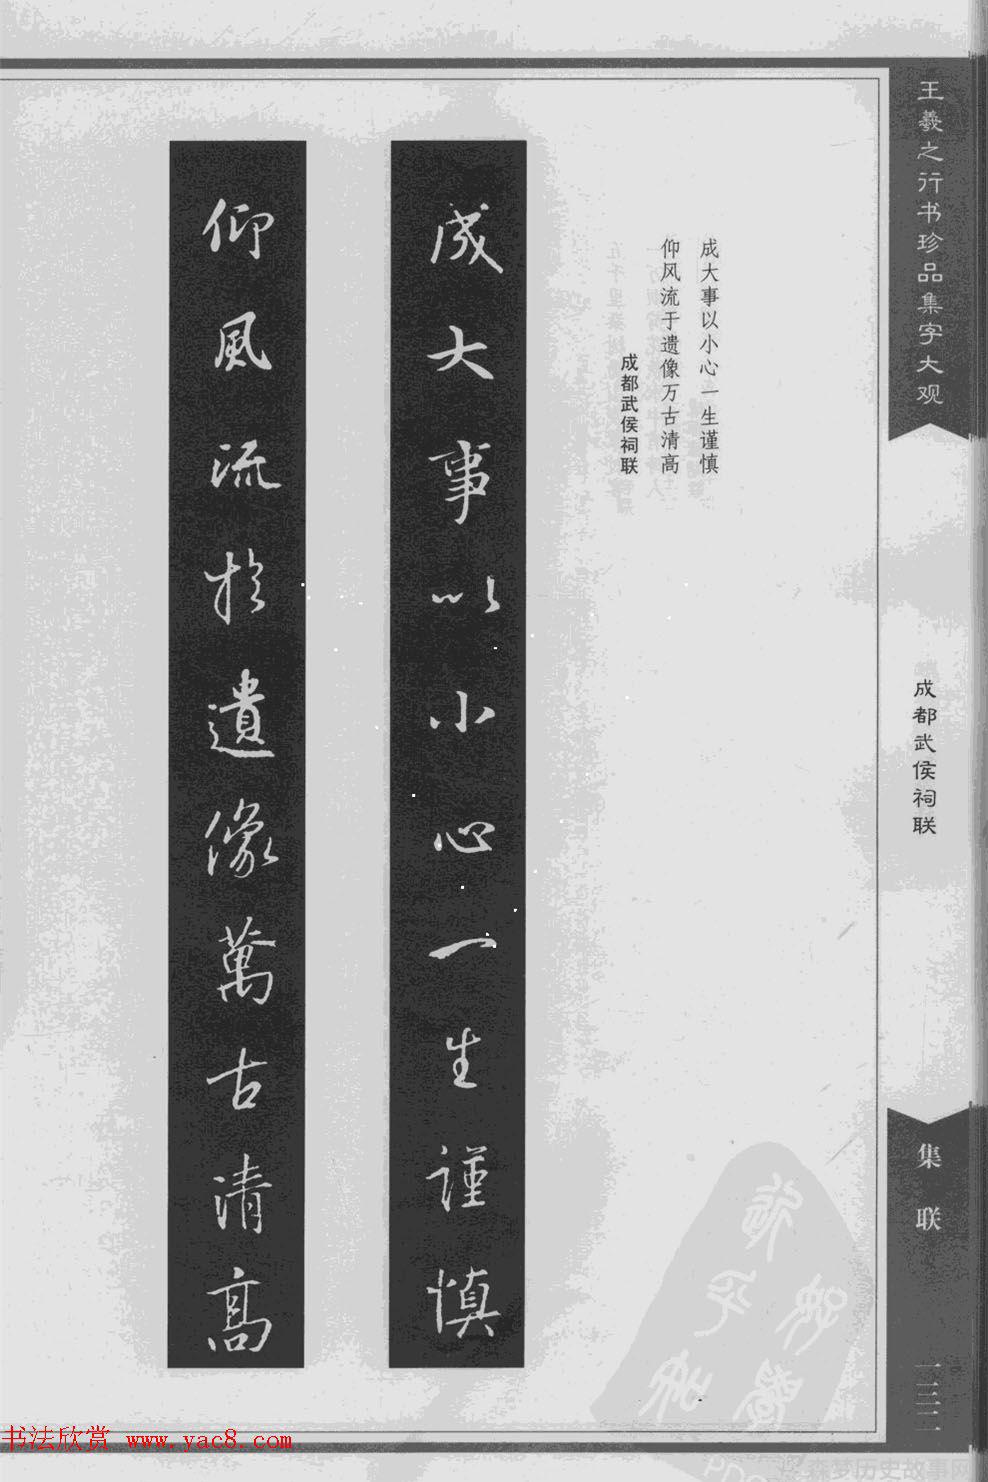 王羲之行书珍品集字大观
成都武侯祠联
集联
一三三
成大事以小心一生谨慎
仰风流于遗像万古清高
成都武侯祠联
成大事以小心一生謹慎
仰風流於遺像萬古清高
书法欣赏 www.yac8.com